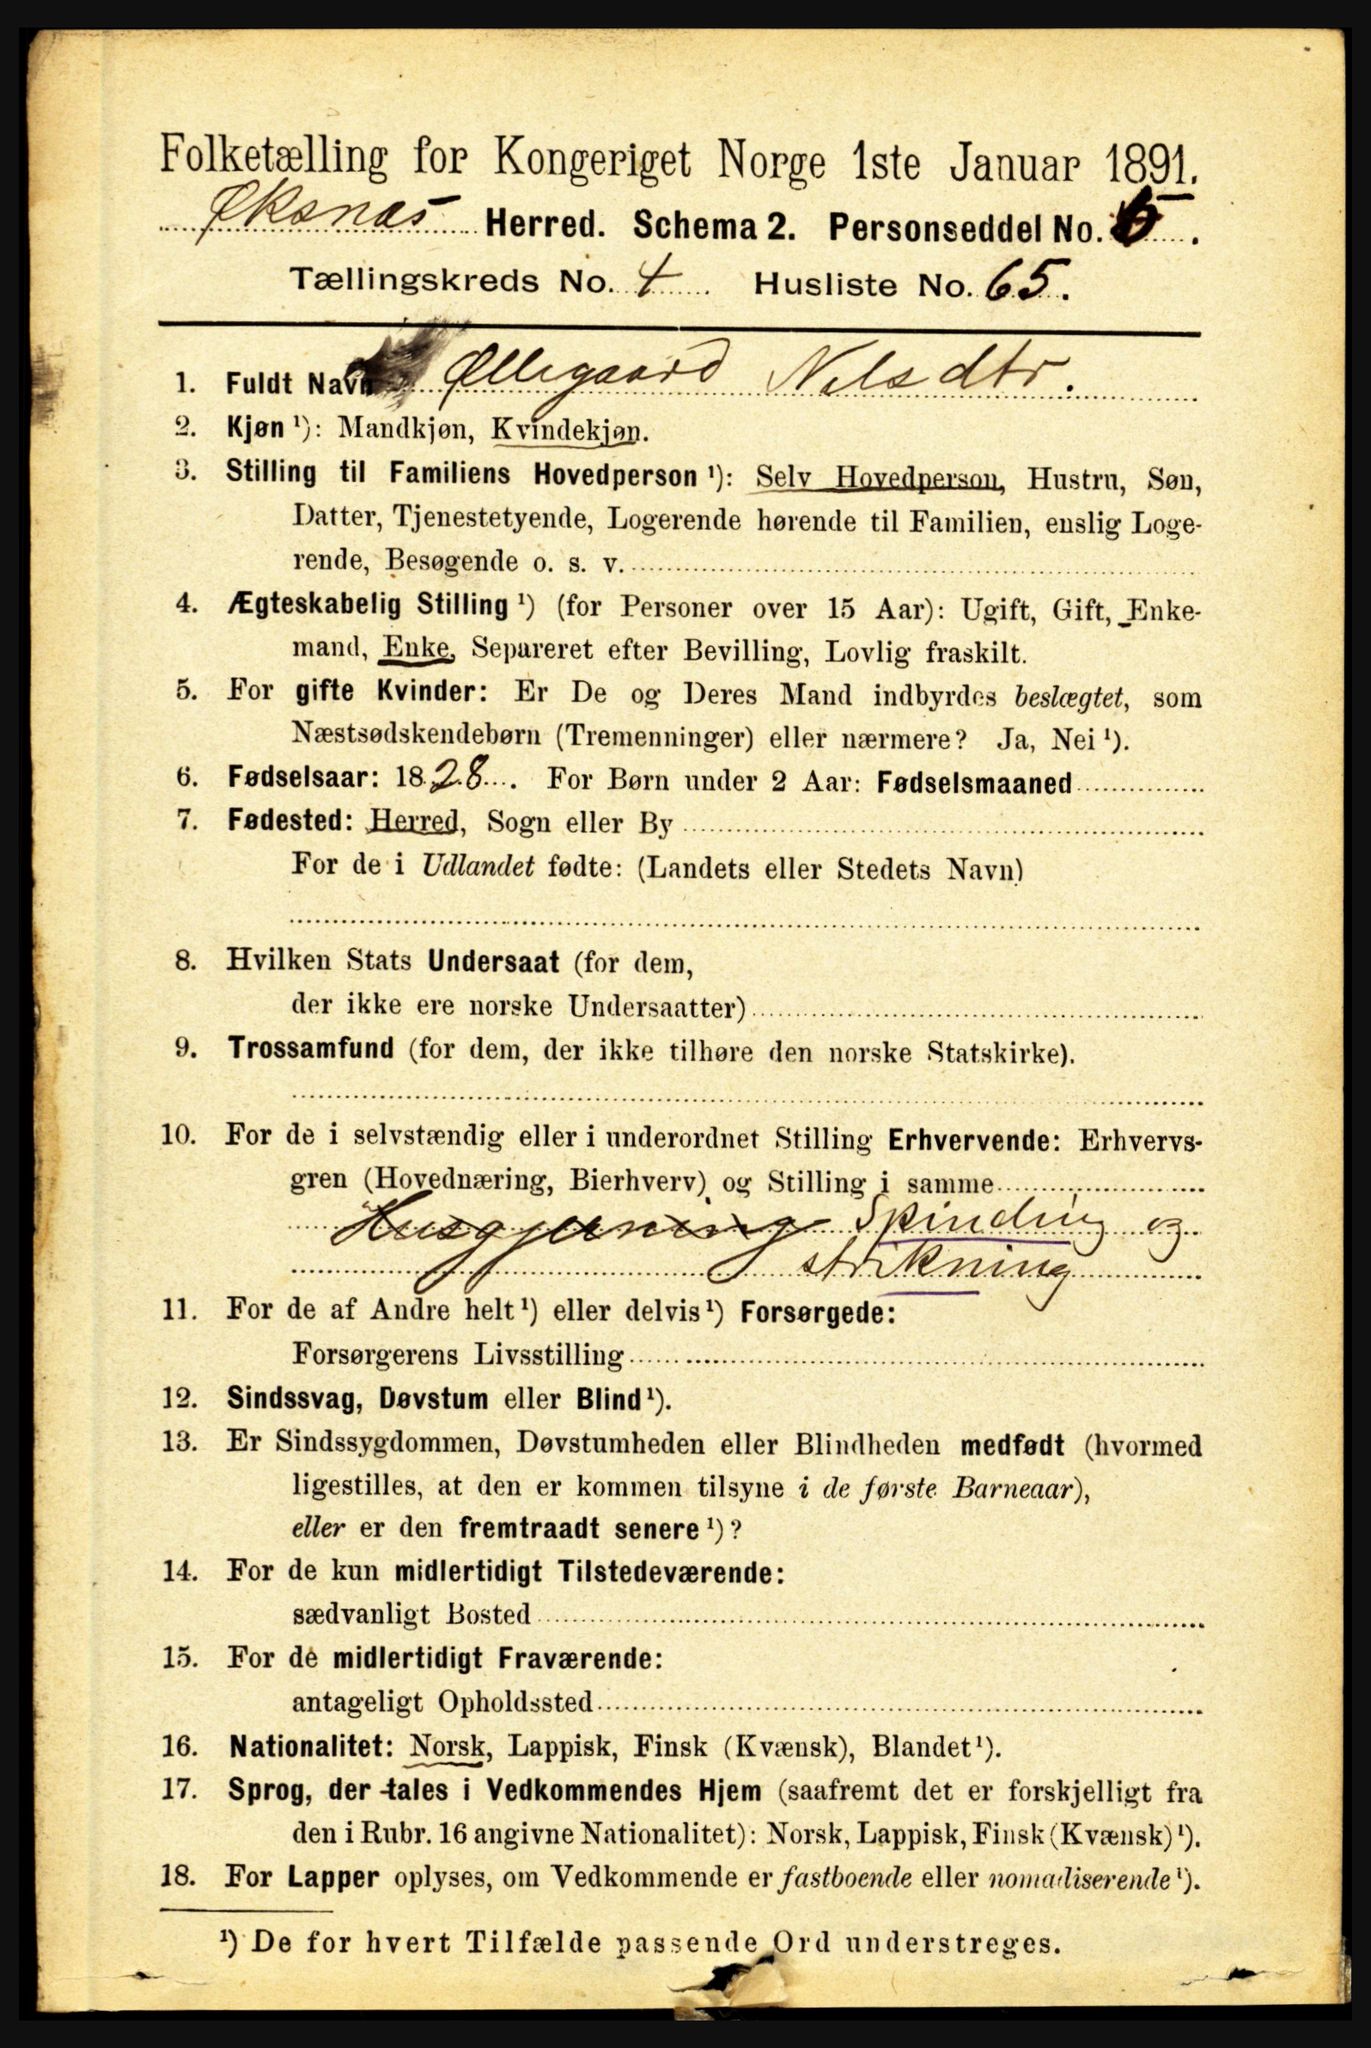 Folketælling for Kongeriget Norge 1ste Januar 1891.
Øksnæs Herred. Schema 2. Personseddel No. 5.
Tællingskreds No. 4 Husliste No. 65.
1. Fuldt Navn Øllegaard Nelsdtr.
2. Kjøn ¹): Mandkjøn, Kvindekjøn.
3. Stilling til Familiens Hovedperson ¹): Selv Hovedperson, Hustru, Søn,
Datter, Tjenestetyende, Logerende hørende til Familien, enslig Loge-
rende, Besøgende o. s. v.
4. Ægteskabelig Stilling ¹) (for Personer over 15 Aar): Ugift, Gift, Enke-
mand, Enke, Separeret efter Bevilling, Lovlig fraskilt.
5. For gifte Kvinder: Er De og Deres Mand indbyrdes beslægtet, som
Næstsødskendebørn (Tremenninger) eller nærmere? Ja, Nei ¹).
6. Fødselsaar: 1828. For Børn under 2 Aar: Fødselsmaaned
7. Fødested: Herred, Sogn eller By
For de i Udlandet fødte: (Landets eller Stedets Navn)
8. Hvilken Stats Undersaat (for dem,
der ikke ere norske Undersaatter)
9. Trossamfund (for dem, der ikke tilhøre den norske Statskirke).
10. For de i selvstændig eller i underordnet Stilling Erhvervende: Erhvervs-
gren (Hovednæring, Bierhverv) og Stilling i samme
Husgjerning Spinding og
strikning
11. For de af Andre helt ¹) eller delvis ¹) Forsørgede:
Forsørgerens Livsstilling
12. Sindssvag, Døvstum eller Blind ¹).
13. Er Sindssygdommen, Døvstumheden eller Blindheden medfødt (hvormed
ligestilles, at den er kommen tilsyne i de første Barneaar),
eller er den fremtraadt senere ¹)?
14. For de kun midlertidigt Tilstedeværende:
sædvanligt Bosted
15. For de midlertidigt Fraværende:
antageligt Opholdssted
16. Nationalitet: Norsk, Lappisk, Finsk (Kvænsk), Blandet ¹).
17. Sprog, der tales i Vedkommendes Hjem (saafremt det er forskjelligt fra
den i Rubr. 16 angivne Nationalitet): Norsk, Lappisk, Finsk (Kvænsk) ¹).
18. For Lapper oplyses, om Vedkommende er fastboende eller nomadiserende ¹).
¹) De for hvert Tilfælde passende Ord understreges.